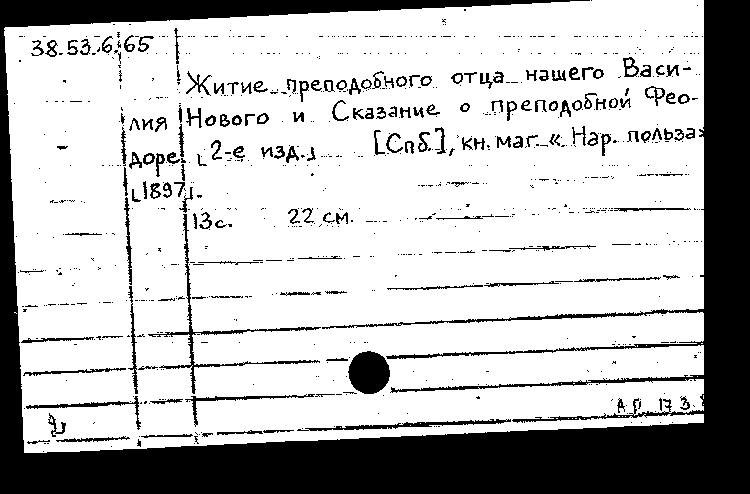 38.53.6.65
Житие преподобного отца нашего Васи-
лия Нового и Сказание о преподобной Фео-
доре. [2-е изд.] [Спб.], кн. маг. « Нар. польза»
[1897].
13 с. 22 см.
А П 17 3